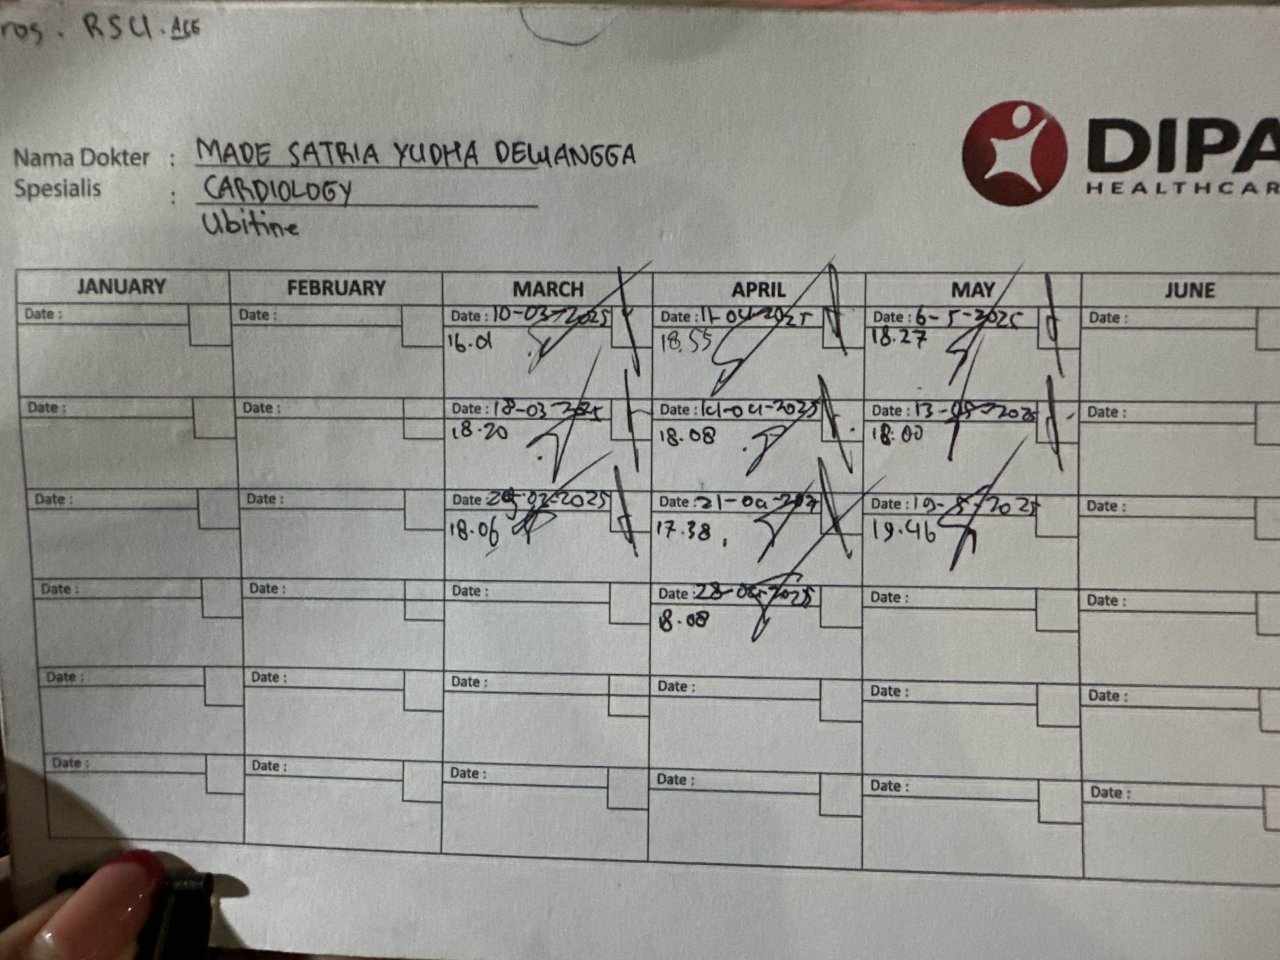 ros. RSU. ACG
Nama Dokter : MADE SATRIA YUDHA DEWANGGA
Spesialis : CARDIOLOGY
Ubitine
DIPA
HEALTHCAR
JANUARY FEBRUARY MARCH APRIL MAY JUNE
Date : Date : Date : 10-03-2025 Date : 11-04-2025 Date : 6-5-2025 Date :
16.01 18.55 18.27
Date : Date : Date : 18-03-2025 Date : 14-04-2025 Date : 13-05-2025 Date :
18.20 18.08 18.00
Date : Date : Date : Date : 21-04-2025 Date : 19-5-2025 Date :
18.06 17.38 19.46
Date : Date : Date : Date : 28-04-2025 Date : Date :
18.08
Date : Date : Date : Date : Date : Date :
Date : Date : Date : Date : Date : Date :